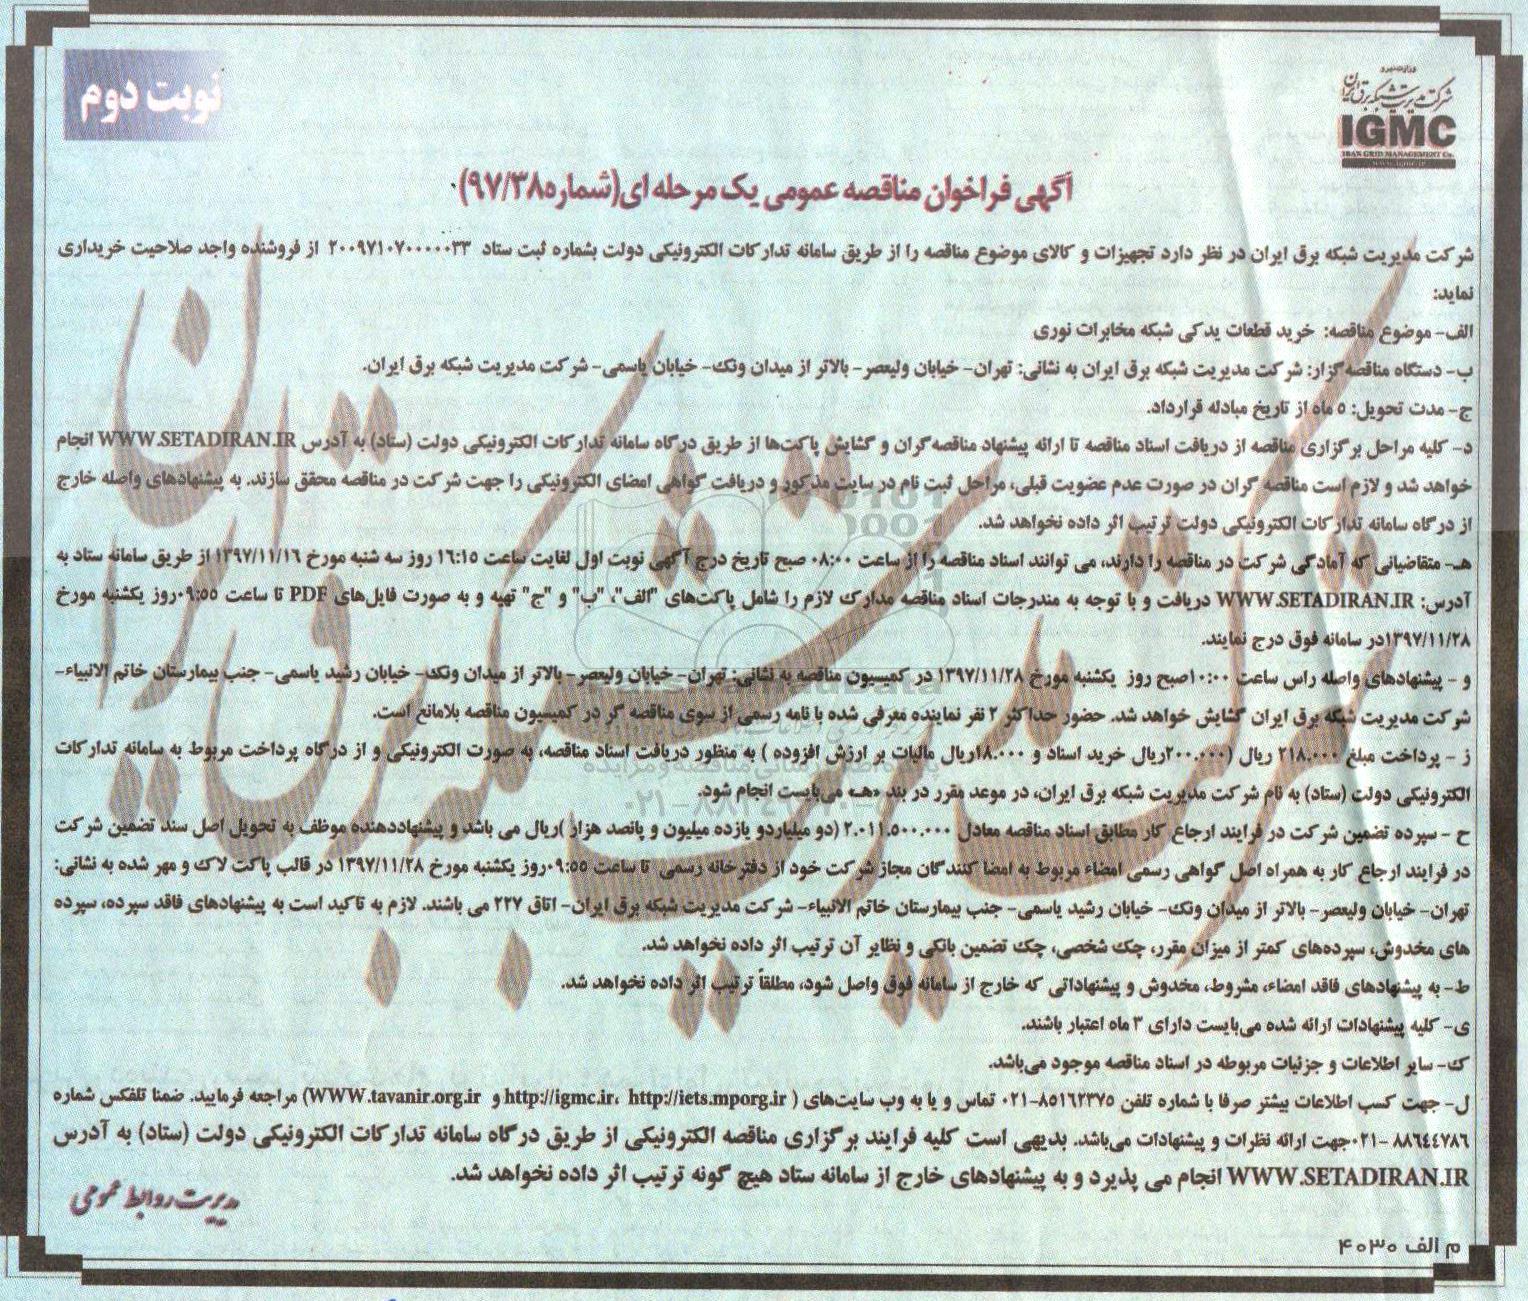 نوبت دوم
وزارت نیرو
شرکت مدیریت شبکه برق ایران
IGMC
IRAN GRID MANAGEMENT Co.
www.igmc.ir
آگهی فراخوان مناقصه عمومی یک مرحله ای(شماره ۹۷/۳۸)
شرکت مدیریت شبکه برق ایران در نظر دارد تجهیزات و کالای موضوع مناقصه را از طریق سامانه تدارکات الکترونیکی دولت بشماره ثبت ستاد ۲۰۰۹۷۱۰۷۰۰۰۰۰۳۳ از فروشنده واجد صلاحیت خریداری
نماید:
الف- موضوع مناقصه: خرید قطعات یدکی شبکه مخابرات نوری
ب- دستگاه مناقصه گزار: شرکت مدیریت شبکه برق ایران به نشانی: تهران- خیابان ولیعصر- بالاتر از میدان ونک- خیابان یاسمی- شرکت مدیریت شبکه برق ایران.
ج- مدت تحویل: ۵ ماه از تاریخ مبادله قرارداد.
د- کلیه مراحل برگزاری مناقصه از دریافت اسناد مناقصه تا ارائه پیشنهاد مناقصه گران و گشایش پاکت‌ها از طریق درگاه سامانه تدارکات الکترونیکی دولت (ستاد) به آدرس WWW.SETADIRAN.IR انجام
خواهد شد و لازم است مناقصه گران در صورت عدم عضویت قبلی، مراحل ثبت نام در سایت مذکور و دریافت گواهی امضای الکترونیکی را جهت شرکت در مناقصه محقق سازند. به پیشنهادهای واصله خارج
از درگاه سامانه تدارکات الکترونیکی دولت ترتیب اثر داده نخواهد شد.
هـ- متقاضیانی که آمادگی شرکت در مناقصه را دارند، می توانند اسناد مناقصه را از ساعت ۰۸:۰۰ صبح تاریخ درج آگهی نوبت اول لغایت ساعت ۱۶:۱۵ روز سه شنبه مورخ ۱۳۹۷/۱۱/۱۶ از طریق سامانه ستاد به
آدرس: WWW.SETADIRAN.IR دریافت و با توجه به مندرجات اسناد مناقصه مدارک لازم را شامل پاکت‌های "الف"، "ب" و "ج" تهیه و به صورت فایل‌های PDF تا ساعت ۰۹:۵۵روز یکشنبه مورخ
۱۳۹۷/۱۱/۲۸در سامانه فوق درج نمایند.
و - پیشنهادهای واصله راس ساعت ۱۰:۰۰صبح روز یکشنبه مورخ ۱۳۹۷/۱۱/۲۸ در کمیسیون مناقصه به نشانی: تهران- خیابان ولیعصر- بالاتر از میدان ونک- خیابان رشید یاسمی- جنب بیمارستان خاتم الانبیاء-
شرکت مدیریت شبکه برق ایران گشایش خواهد شد. حضور حداکثر ۲ نفر نماینده معرفی شده با نامه رسمی از سوی مناقصه گر در کمیسیون مناقصه بلامانع است.
ز - پرداخت مبلغ ۲۱۸.۰۰۰ ریال (۲۰۰.۰۰۰ریال خرید اسناد و ۱۸.۰۰۰ریال مالیات بر ارزش افزوده ) به منظور دریافت اسناد مناقصه، به صورت الکترونیکی و از درگاه پرداخت مربوط به سامانه تدارکات
الکترونیکی دولت (ستاد) به نام شرکت مدیریت شبکه برق ایران، در موعد مقرر در بند «هـ» می‌بایست انجام شود.
ح - سپرده تضمین شرکت در فرایند ارجاع کار مطابق اسناد مناقصه معادل ۲.۰۱۱.۵۰۰.۰۰۰ (دو میلیاردو یازده میلیون و پانصد هزار )ریال می باشد و پیشنهاددهنده موظف به تحویل اصل سند تضمین شرکت
در فرایند ارجاع کار به همراه اصل گواهی رسمی امضاء مربوط به امضا کنندگان مجاز شرکت خود از دفترخانه رسمی تا ساعت ۰۹:۵۵روز یکشنبه مورخ ۱۳۹۷/۱۱/۲۸ در قالب پاکت لاک و مهر شده به نشانی:
تهران- خیابان ولیعصر- بالاتر از میدان ونک- خیابان رشید یاسمی- جنب بیمارستان خاتم الانبیاء- شرکت مدیریت شبکه برق ایران- اتاق ۲۲۷ می باشند. لازم به تاکید است به پیشنهادهای فاقد سپرده، سپرده
های مخدوش، سپرده‌های کمتر از میزان مقرر، چک شخصی، چک تضمین بانکی و نظایر آن ترتیب اثر داده نخواهد شد.
ط- به پیشنهادهای فاقد امضاء، مشروط، مخدوش و پیشنهاداتی که خارج از سامانه فوق واصل شود، مطلقاً ترتیب اثر داده نخواهد شد.
ی- کلیه پیشنهادات ارائه شده می‌بایست دارای ۳ ماه اعتبار باشند.
ک- سایر اطلاعات و جزئیات مربوطه در اسناد مناقصه موجود می‌باشد.
ل- جهت کسب اطلاعات بیشتر صرفا با شماره تلفن ۸۵۱۶۲۳۷۵-۰۲۱ تماس و یا به وب سایت‌های ( http://igmc.ir، http://iets.mporg.ir و WWW.tavanir.org.ir) مراجعه فرمایید. ضمنا تلفکس شماره
۸۸۶۴۴۷۸۶ -۰۲۱جهت ارائه نظرات و پیشنهادات می‌باشد. بدیهی است کلیه فرایند برگزاری مناقصه الکترونیکی از طریق درگاه سامانه تدارکات الکترونیکی دولت (ستاد) به آدرس
WWW.SETADIRAN.IR انجام می پذیرد و به پیشنهادهای خارج از سامانه ستاد هیچ گونه ترتیب اثر داده نخواهد شد.
مدیریت روابط عمومی
م الف ۴۰۳۰